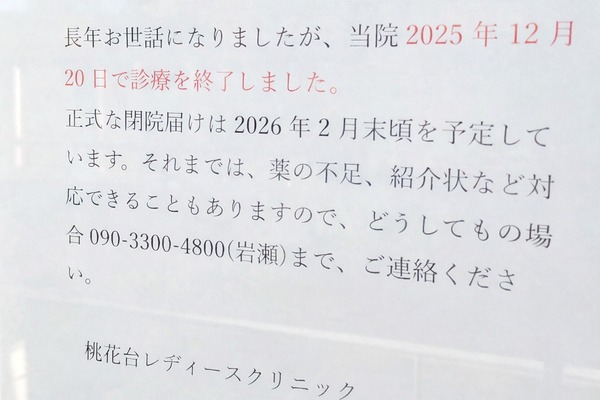 長年お世話になりましたが、当院 2025 年 12 月
20 日で診療を終了しました。
正式な閉院届けは 2026 年 2 月末頃を予定して
います。それまでは、薬の不足、紹介状など対
応できることもありますので、どうしてもの場
合 090-3300-4800(岩瀬)まで、ご連絡くださ
い。
桃花台レディースクリニック